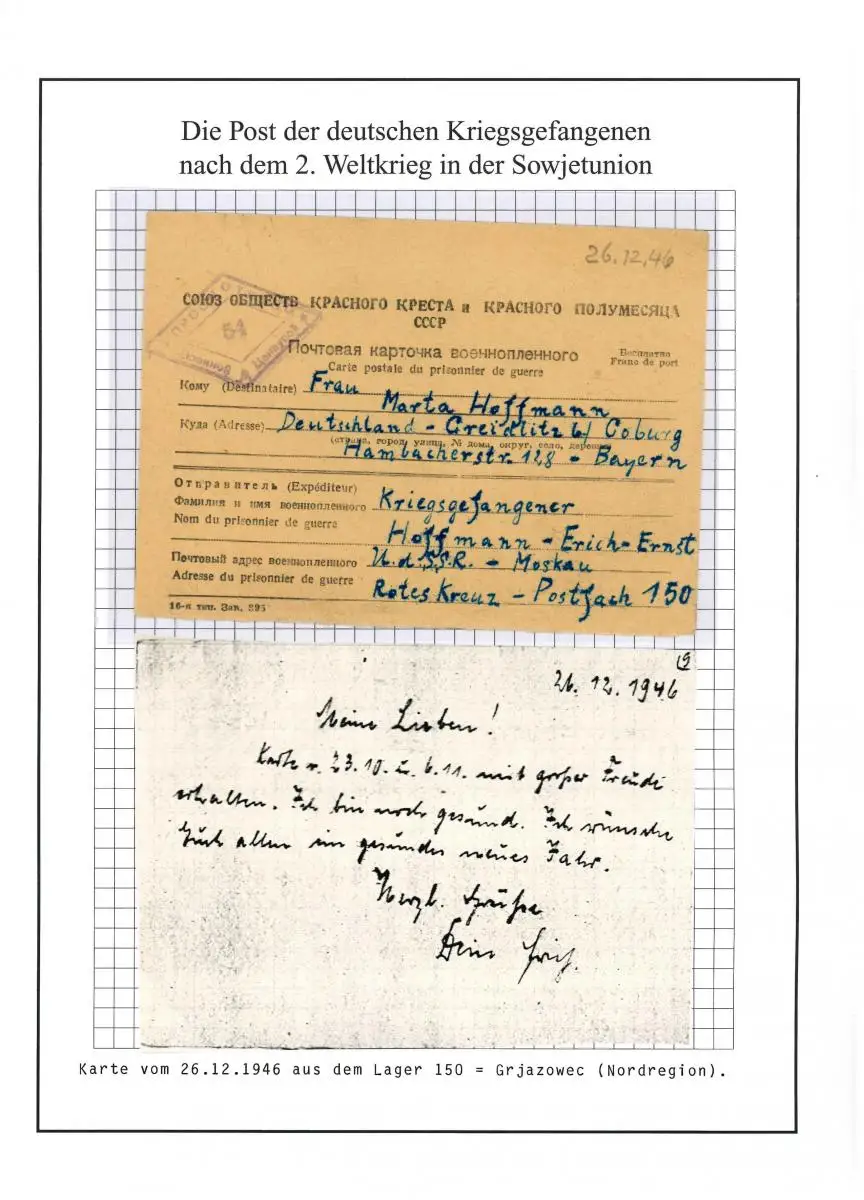 Die Post der deutschen Kriegsgefangenen
nach dem 2. Weltkrieg in der Sowjetunion
26.12.46
СОЮЗ ОБЩЕСТВ КРАСНОГО КРЕСТА и КРАСНОГО ПОЛУМЕСЯЦА
СССР
54
Почтовая карточка военнопленного
Бесплатно
Carte postale du prisonnier de guerre
Franc de port
Кому (Destinataire) Frau
Marta Hoffmann
Куда (Adresse) Deutschland - Creidlitz b/ Coburg
(страна, город, улица, № дома, округ, село, деревня)
Hambacherstr. 128 - Bayern
Отправитель (Expéditeur)
Фамилия и имя военнопленного Kriegsgefangener
Nom du prisonnier de guerre
Hoffmann - Erich - Ernst
Почтовый адрес военнопленного U.d.S.S.R. - Moskau
Adresse du prisonnier de guerre
Rotes Kreuz - Postfach 150
16-я тип. Зак. 895
26.12.1946
Meine Lieben!
Karte v. 23.10. u. 6.11. mit großer Freude
erhalten. Ich bin noch gesund. Ich wünsche
Euch allen ein gesundes neues Jahr.
Herzl. Grüße
Dein Erich.
Karte vom 26.12.1946 aus dem Lager 150 = Grjazowec (Nordregion).